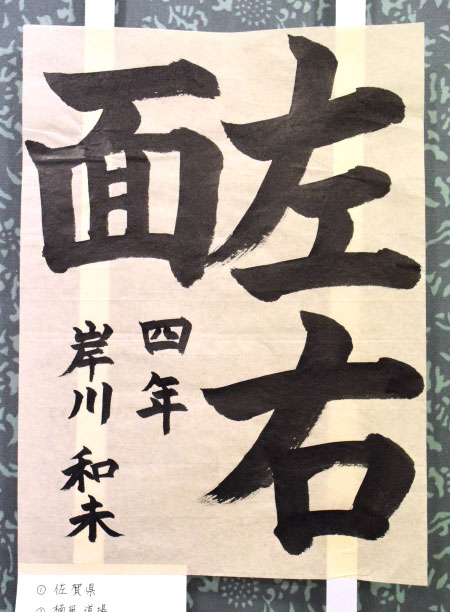 左右
面
四年
岸川和未
① 佐賀県